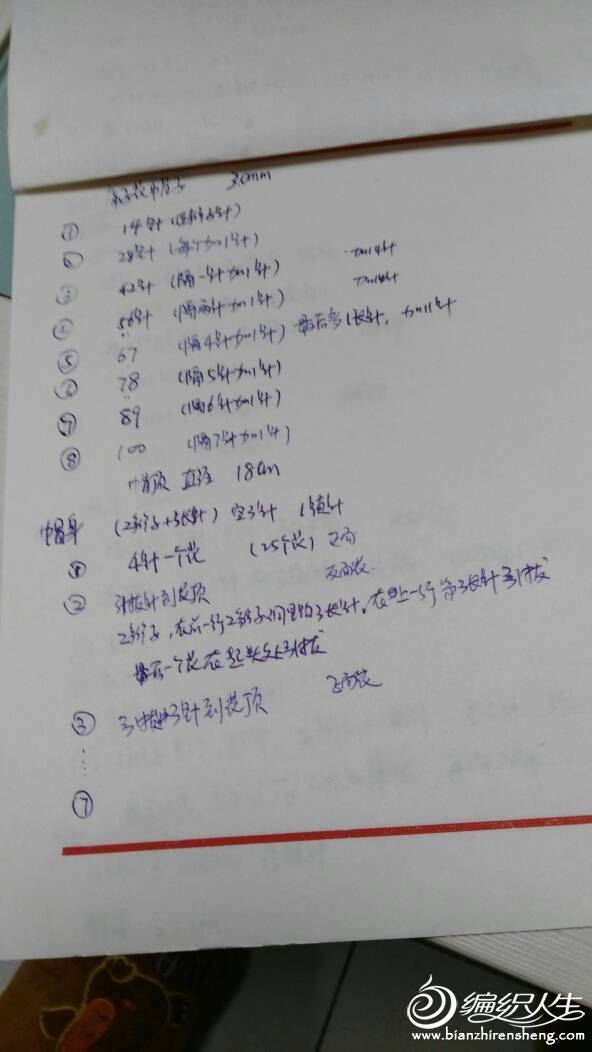 3.0mm
① 14针
② 28针 (每个加1针)
③ 42针 (隔一针加1针) 加14针
④ 56针 (隔两针加1针) 加14针
⑤ 67 (隔4针加1针) 最后多1长针,加11针
⑥ 78 (隔5针加1针)
⑦ 89 (隔6针加1针)
⑧ 100 (隔7针加1针)
帽顶 直径 18cm
帽身 (2辫子+3长针) 1短针
① 4针一个花 (25个花) 正面
② 引拔针到花顶 反面花
2辫子,在前一行2辫子 里钩3长针,在上一行第3长针引拔
最后一个花在起头处引拔
③ 引拔 针到花顶 正面花
⑦
编织人生
www.bianzhirensheng.com